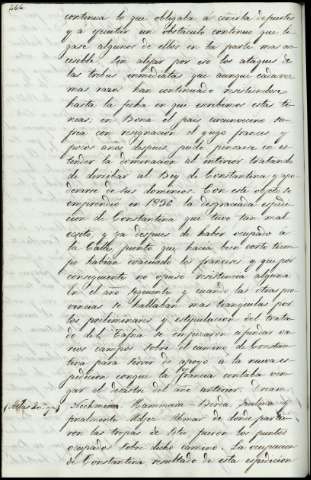 466
continua lo que obligaba á ceñirla de puestos
y a ejecutar un obstaculo continuo que li-
gase algunos de ellos en la parte mas ac-
cesible sin alejar por eso los ataques de
las tribus inmediatas que aunque cada vez
mas raros han continuado resistiendose
hasta la fecha en que escribimos estas li-
neas. en Bona el pais circunvecino su-
fria con resignacion el yugo frances y
pocos años despues pudo pensarse en es-
tender la dominacion al interior tratando
de derrotar al Bey de Constantina y apo-
derarse de sus dominios. Con este objeto se
emprendió en 1836 la desgraciada espedi-
cion de Constantina que tuvo tan mal
exito, y ya despues de haber ocupado a
la Calle, punto que hacia bien corto tiem-
po habian evacuado los franceses y que por
consiguiente no opuso resistencia alguna
en el año siguiente y cuando las otras pro-
vincias se hallaban mas tranquilas por
los preliminares y estipulacion del trata-
do del Tafna se empezaron a fundar va-
rios campos sobre el camino de Constan-
tina para servir de apoyo a la nueva es-
pedicion conque la Francia contaba ven-
gar el desastre del año anterior. Drean,
Nechmeia Hammam-Berda Guelma y
finalmente Medjez-Ahmar de donde partie-
ron las tropas de
fueron los puntos
ocupados sobre dicho camino. La ocupacion
de Constantina resultado de esta espedicion